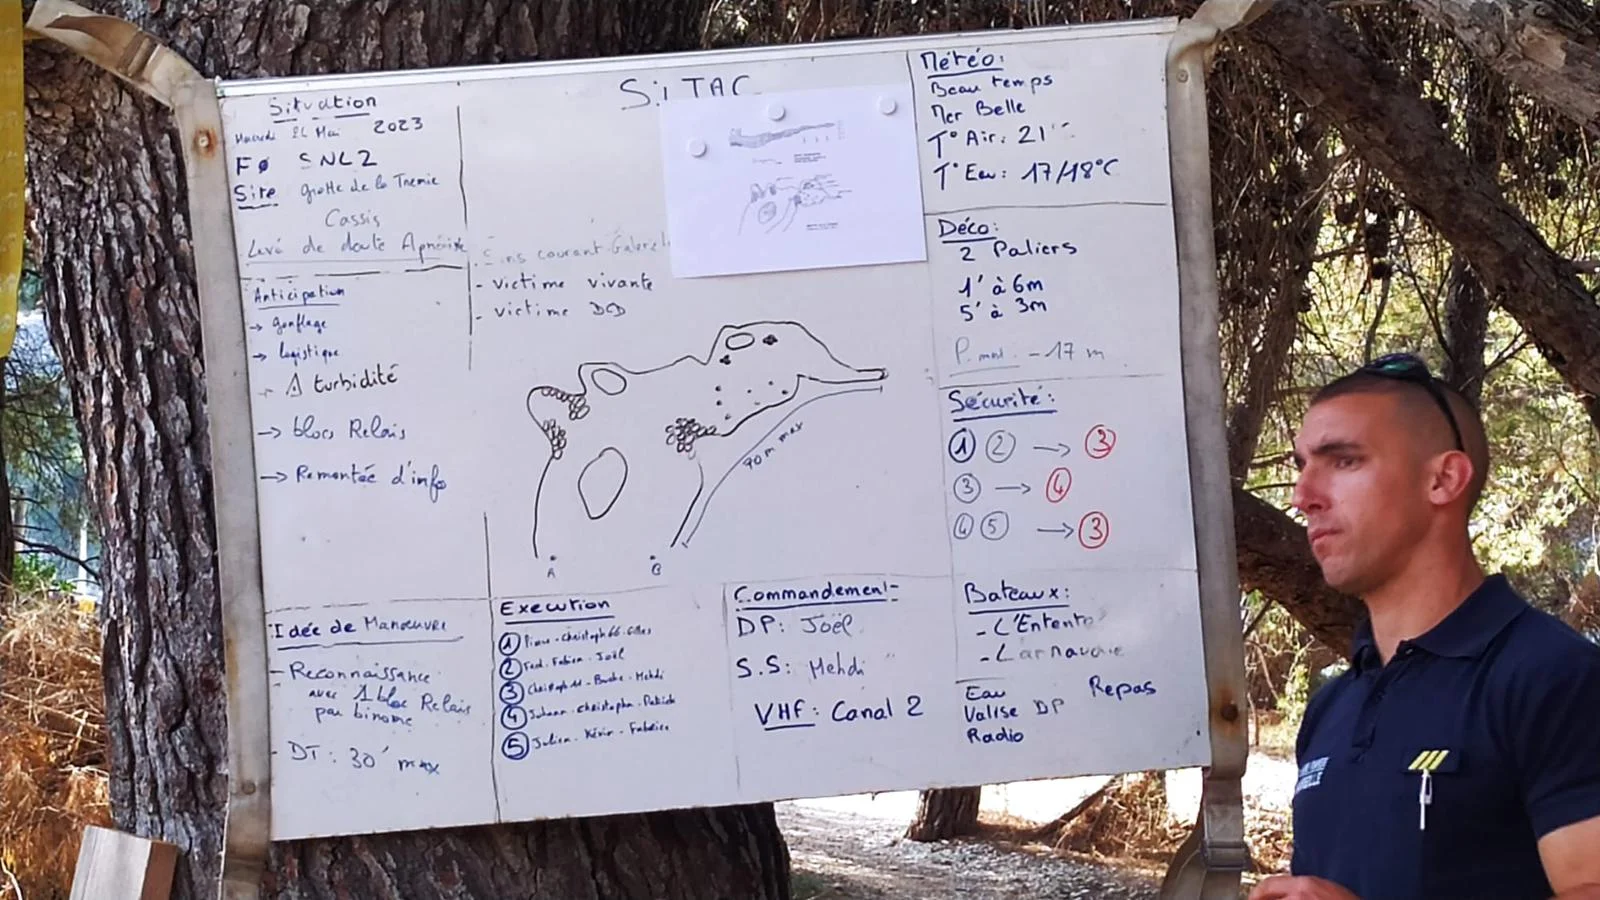 Situation
Mercredi 24 Mai 2023
FØ SNL2
Site grotte de la Tremie
Cassis
Levé de doute Apnéiste
Anticipation
→ gonflage
→ logistique
→ turbidité
→ blocs Relais
→ Remontée d'info
SiTAC
courant Galerie
- victime vivante
- victime DCD
90 m max
A B
Météo:
Beau temps
Mer Belle
T° Air: 21°
T° Eau: 17/18°C
Déco:
2 Paliers
1' à 6m
5' à 3m
P. max. -17 m
Sécurité:
① ② → ③
③ → ④
④ ⑤ → ③
Idée de Manœuvre
- Reconnaissance
avec 1 bloc Relais
par binome
- DT: 30' max
Execution
① Christoph 66 - Gilles
② Fred - Fabien - Joël
③ Christoph - Mehdi
④ Johann - Christophe - Patrick
⑤ Julien - Kévin - Fabrice
Commandement
DP: Joël
S.S: Mehdi
VHF: Canal 2
Bateaux:
- L'Entente
Eau Repas
Valise DP
Radio